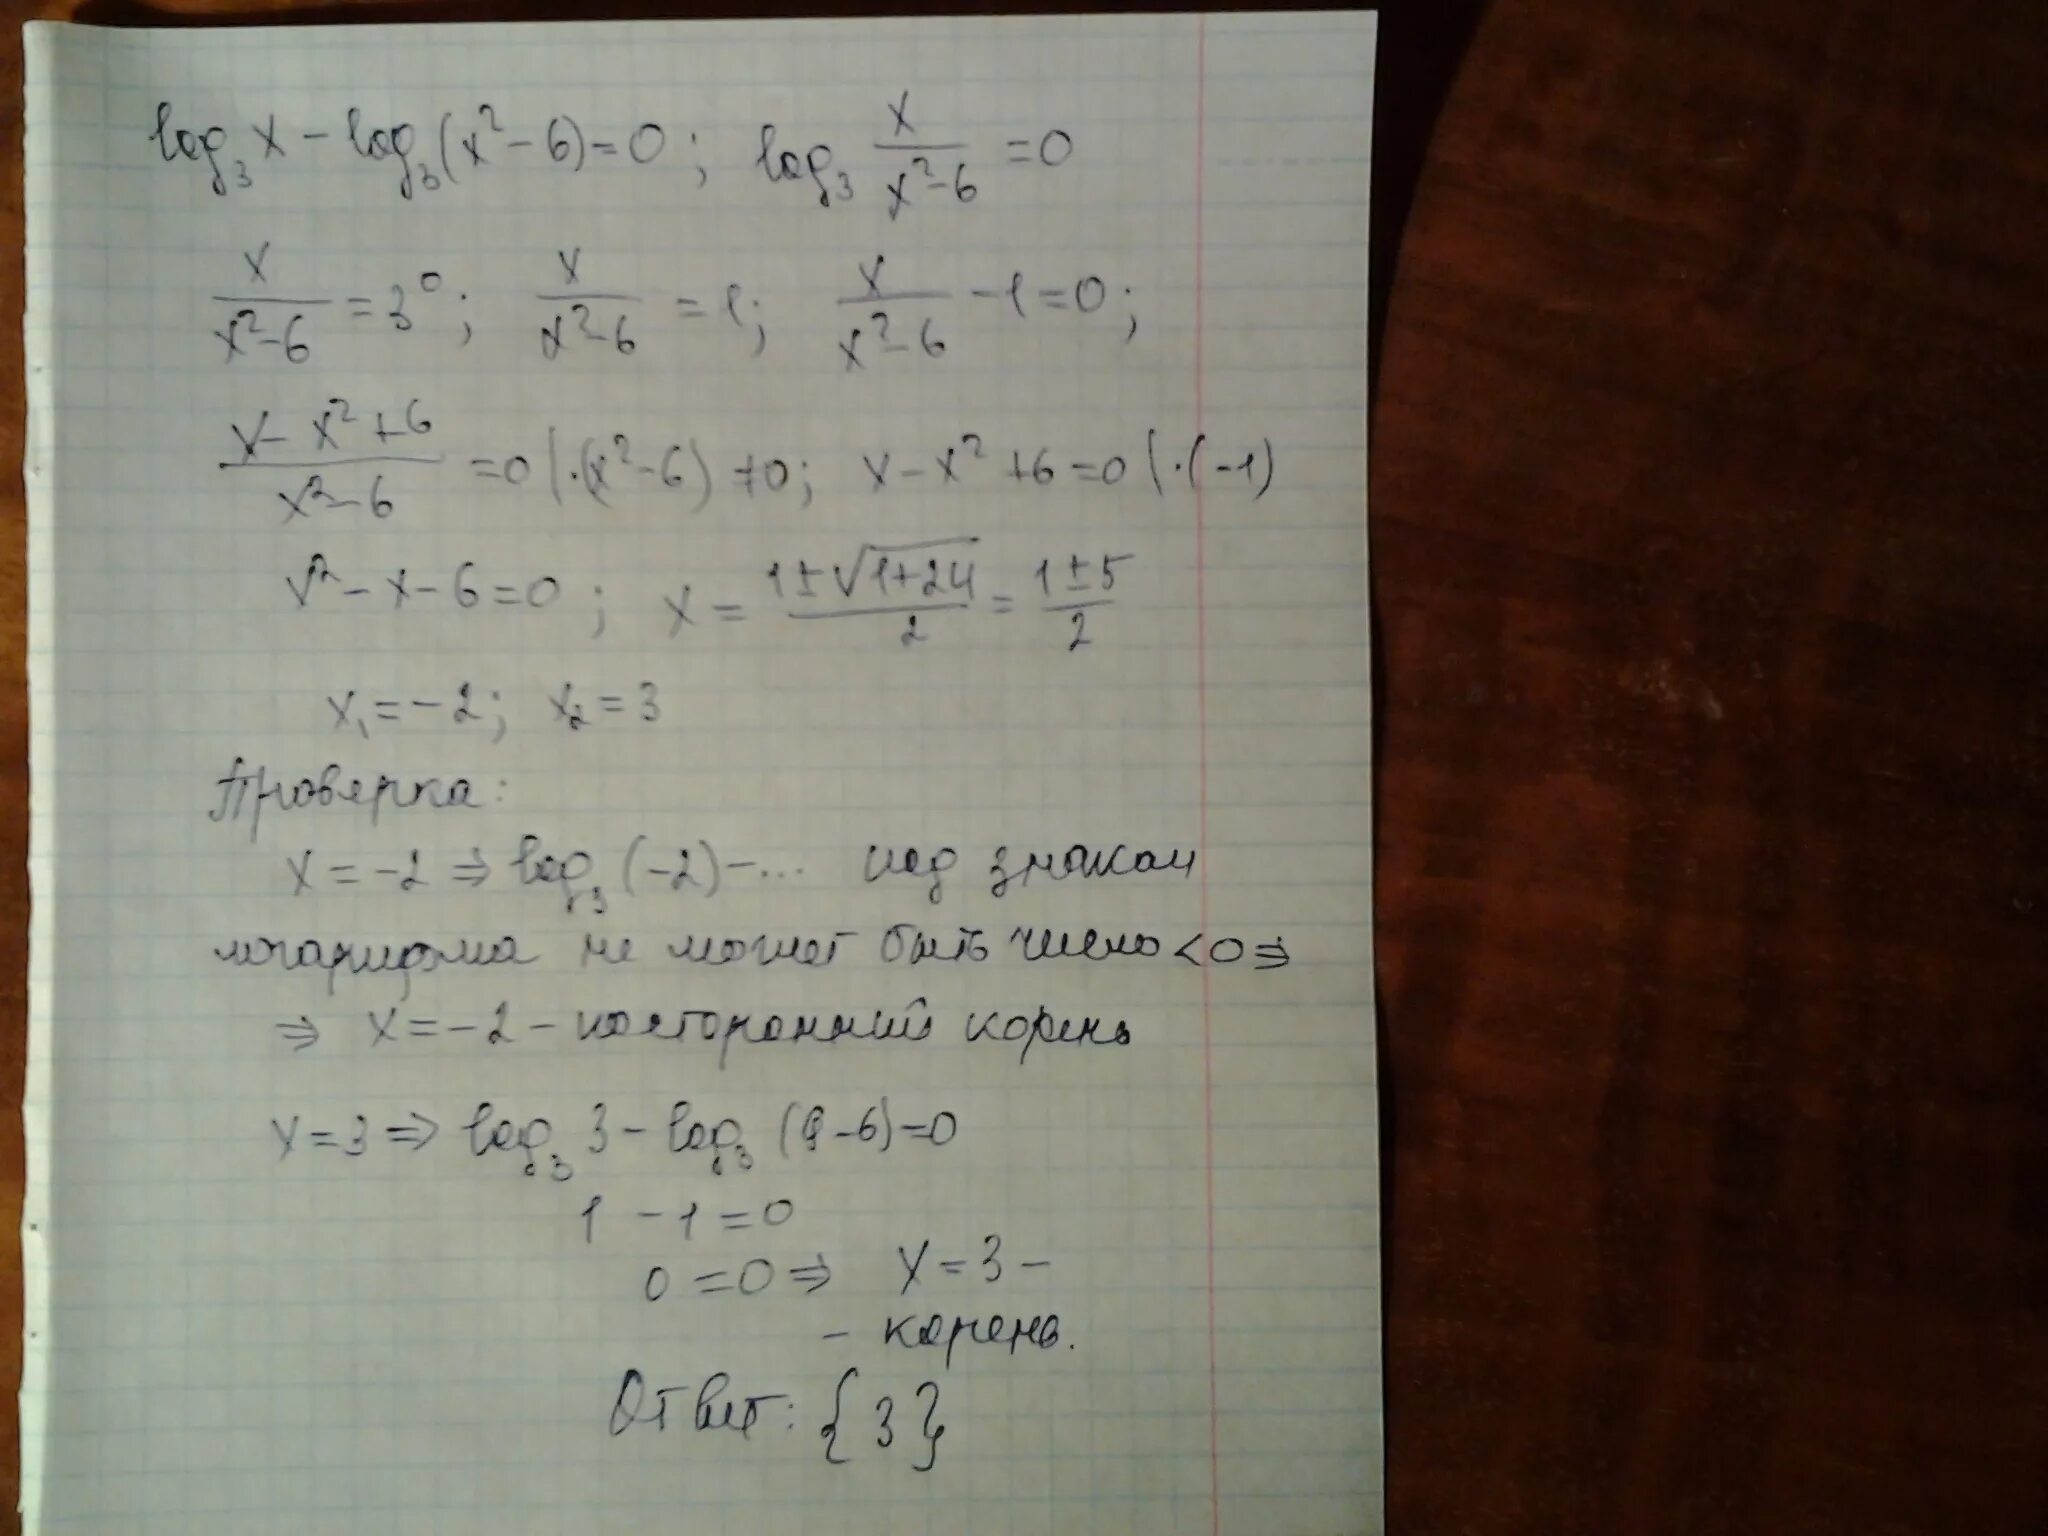 log₃ x − log₃ (x² − 6) = 0 ; log₃ x/(x² − 6) = 0
x/(x² − 6) = 3⁰ ; x/(x² − 6) = 1 ; x/(x² − 6) − 1 = 0 ;
(x − x² + 6)/(x² − 6) = 0 | · (x² − 6) ≠ 0 ; x − x² + 6 = 0 | · (−1)
x² − x − 6 = 0 ; x = (1 ± √(1 + 24))/2 = (1 ± 5)/2
x₁ = −2 ; x₂ = 3
Проверка:
x = −2 ⇒ log₃ (−2) − ... под знаком
логарифма не может быть число < 0 ⇒
⇒ x = −2 − посторонний корень
x = 3 ⇒ log₃ 3 − log₃ (9 − 6) = 0
1 − 1 = 0
0 = 0 ⇒ x = 3 −
− корень.
Ответ: {3}